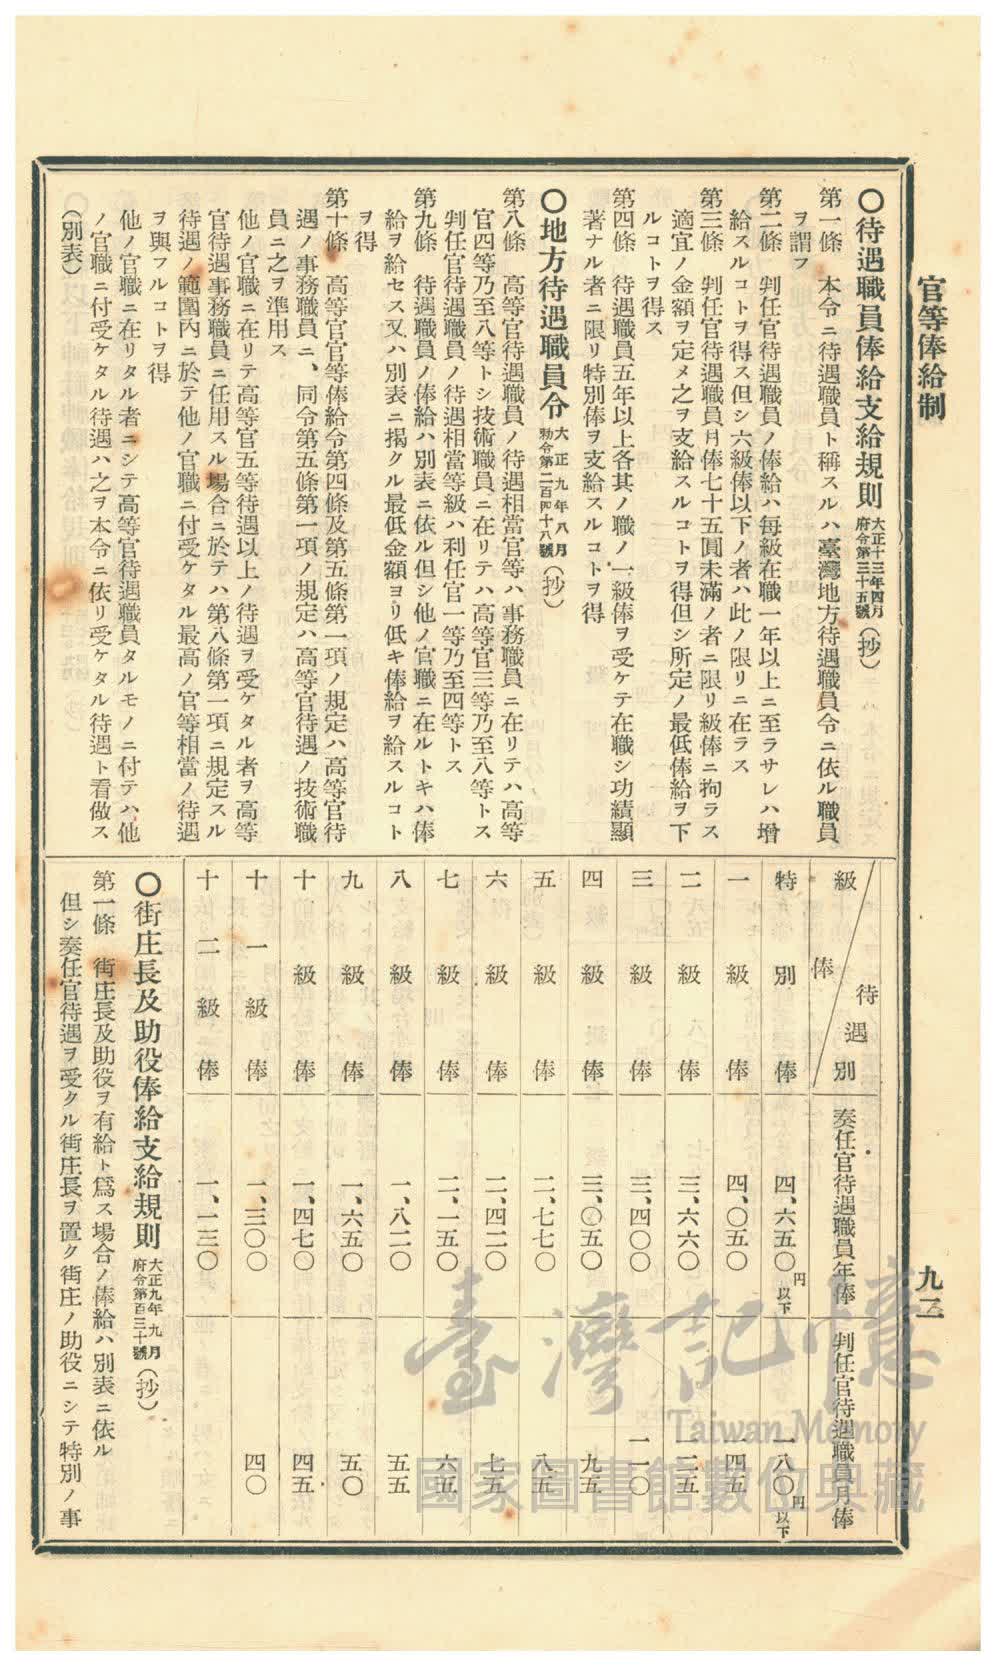 官等俸給制
九三
〇待遇職員俸給支給規則 大正十三年四月府令第三十五號(抄)
第一條 本令ニ待遇職員ト稱スルハ臺灣地方待遇職員令ニ依ル職員
ヲ謂フ
第二條 判任官待遇職員ノ俸給ハ每級在職一年以上ニ至ラサレハ增
給スルコトヲ得ス但シ六級俸以下ノ者ハ此ノ限リニ在ラス
第三條 判任官待遇職員月俸七十五圓未滿ノ者ニ限リ級俸ニ拘ラス
適宜ノ金額ヲ定メ之ヲ支給スルコトヲ得但シ所定ノ最低俸給ヲ下
ルコトヲ得ス
第四條 待遇職員五年以上各其ノ職ノ一級俸ヲ受ケテ在職シ功績顯
著ナル者ニ限リ特別俸ヲ支給スルコトヲ得
〇地方待遇職員令 大正九年八月勅令第二百四十八號(抄)
第八條 高等官待遇職員ノ待遇相當官等ハ事務職員ニ在リテハ高等
官四等乃至八等トシ技術職員ニ在リテハ高等官三等乃至八等トス
判任官待遇職員ノ待遇相當等級ハ利任官一等乃至四等トス
第九條 待遇職員ノ俸給ハ別表ニ依ル但シ他ノ官職ニ在ルトキハ俸
給ヲ給セス又ハ別表ニ揭クル最低金額ヨリ低キ俸給ヲ給スルコト
ヲ得
第十條 高等官官等俸給令第四條及第五條第一項ノ規定ハ高等官待
遇ノ事務職員ニ、同令第五條第一項ノ規定ハ高等官待遇ノ技術職
員ニ之ヲ準用ス
他ノ官職ニ在リテ高等官五等待遇以上ノ待遇ヲ受ケタル者ヲ高等
官待遇事務職員ニ任用スル場合ニ於テハ第八條第一項ニ規定スル
待遇ノ範圍內ニ於テ他ノ官職ニ付受ケタル最高ノ官等相當ノ待遇
ヲ與フルコトヲ得
他ノ官職ニ在リタル者ニシテ高等官待遇職員タルモノニ付テハ他
ノ官職ニ付受ケタル待遇ハ之ヲ本令ニ依リ受ケタル待遇ト看做ス
(別表)
級俸 待遇別 奏任官待遇職員年俸 判任官待遇職員月俸
特別俸 四、六五〇円以下 一八〇円以下
一級俸 四、〇五〇 一四五
二級俸 三、六六〇 一二五
三級俸 三、四〇〇 一一〇
四級俸 三、〇五〇 九五
五級俸 二、七七〇 八五
六級俸 二、四二〇 七五
七級俸 二、一五〇 六五
八級俸 一、八二〇 五五
九級俸 一、六五〇 五〇
十級俸 一、四七〇 四五
十一級俸 一、三〇〇 四〇
十二級俸 一、一三〇
〇街庄長及助役俸給支給規則 大正九年九月府令第百三十號(抄)
第一條 街庄長及助役ヲ有給ト爲ス場合ノ俸給ハ別表ニ依ル
但シ奏任官待遇ヲ受クル街庄長ヲ置ク街庄ノ助役ニシテ特別ノ事
臺灣記憶
Taiwan Memory
國家圖書館數位典藏